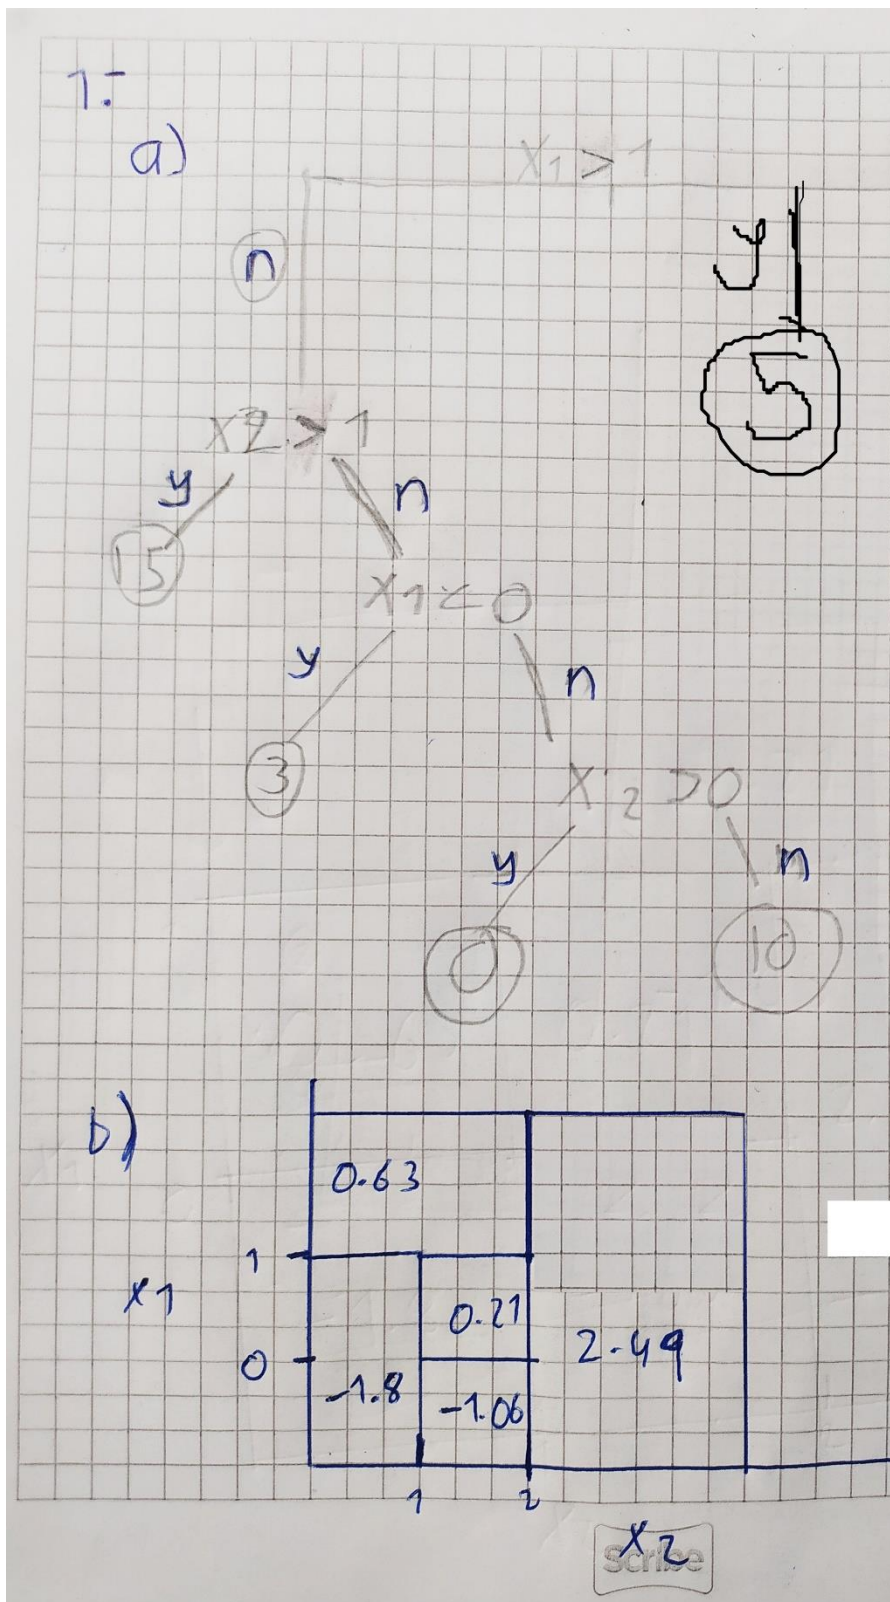 1.-
a)
x1 > 1
n
y
5
x2 > 1
y
n
15
x1 < 0
y
n
3
x2 > 0
y
n
0
10
b)
0.63
1
x1
0.21
0
2.49
-1.8
-1.06
1
2
x2
Scribe